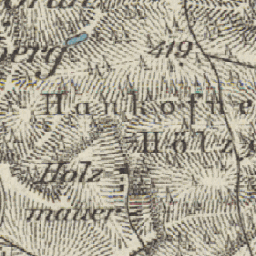 419
Hankofne
Hölz
Holz
mauer